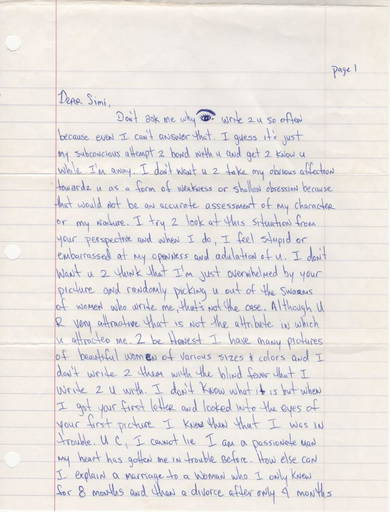 page 1
Dear Simi,
Don't ask me why 👁 write 2 u so often
because even I can't answer that. I guess it's just
my subconcious attempt 2 bond with u and get 2 know u
while I'm away. I don't want u 2 take my obvious affection
towards u as a form of weakness or shallow obsession because
that would not be an accurate assessment of my character
or my nature. I try 2 look at this situation from
your perspective and when I do, I feel stupid or
embarassed at my openness and adulation of u. I don't
want u 2 think that I'm just overwhelmed by your
picture and randomly picking u out of the swarms
of women who write me, that's not the case. Although U
R very attractive that is not the attribute in which
u attracted me. 2 be Honest I have many pictures
of beautiful women of various sizes & colors and I
don't write 2 them with the blind fever that I
write 2 U with. I don't know what it is but when
I got your first letter and looked into the eyes of
your first picture I knew then that I was in
trouble. U C, I cannot lie I am a passionate man
my heart has gotten me in trouble before. How else can
I explain a marriage to a woman who I only knew
for 8 months and then a divorce after only 4 months